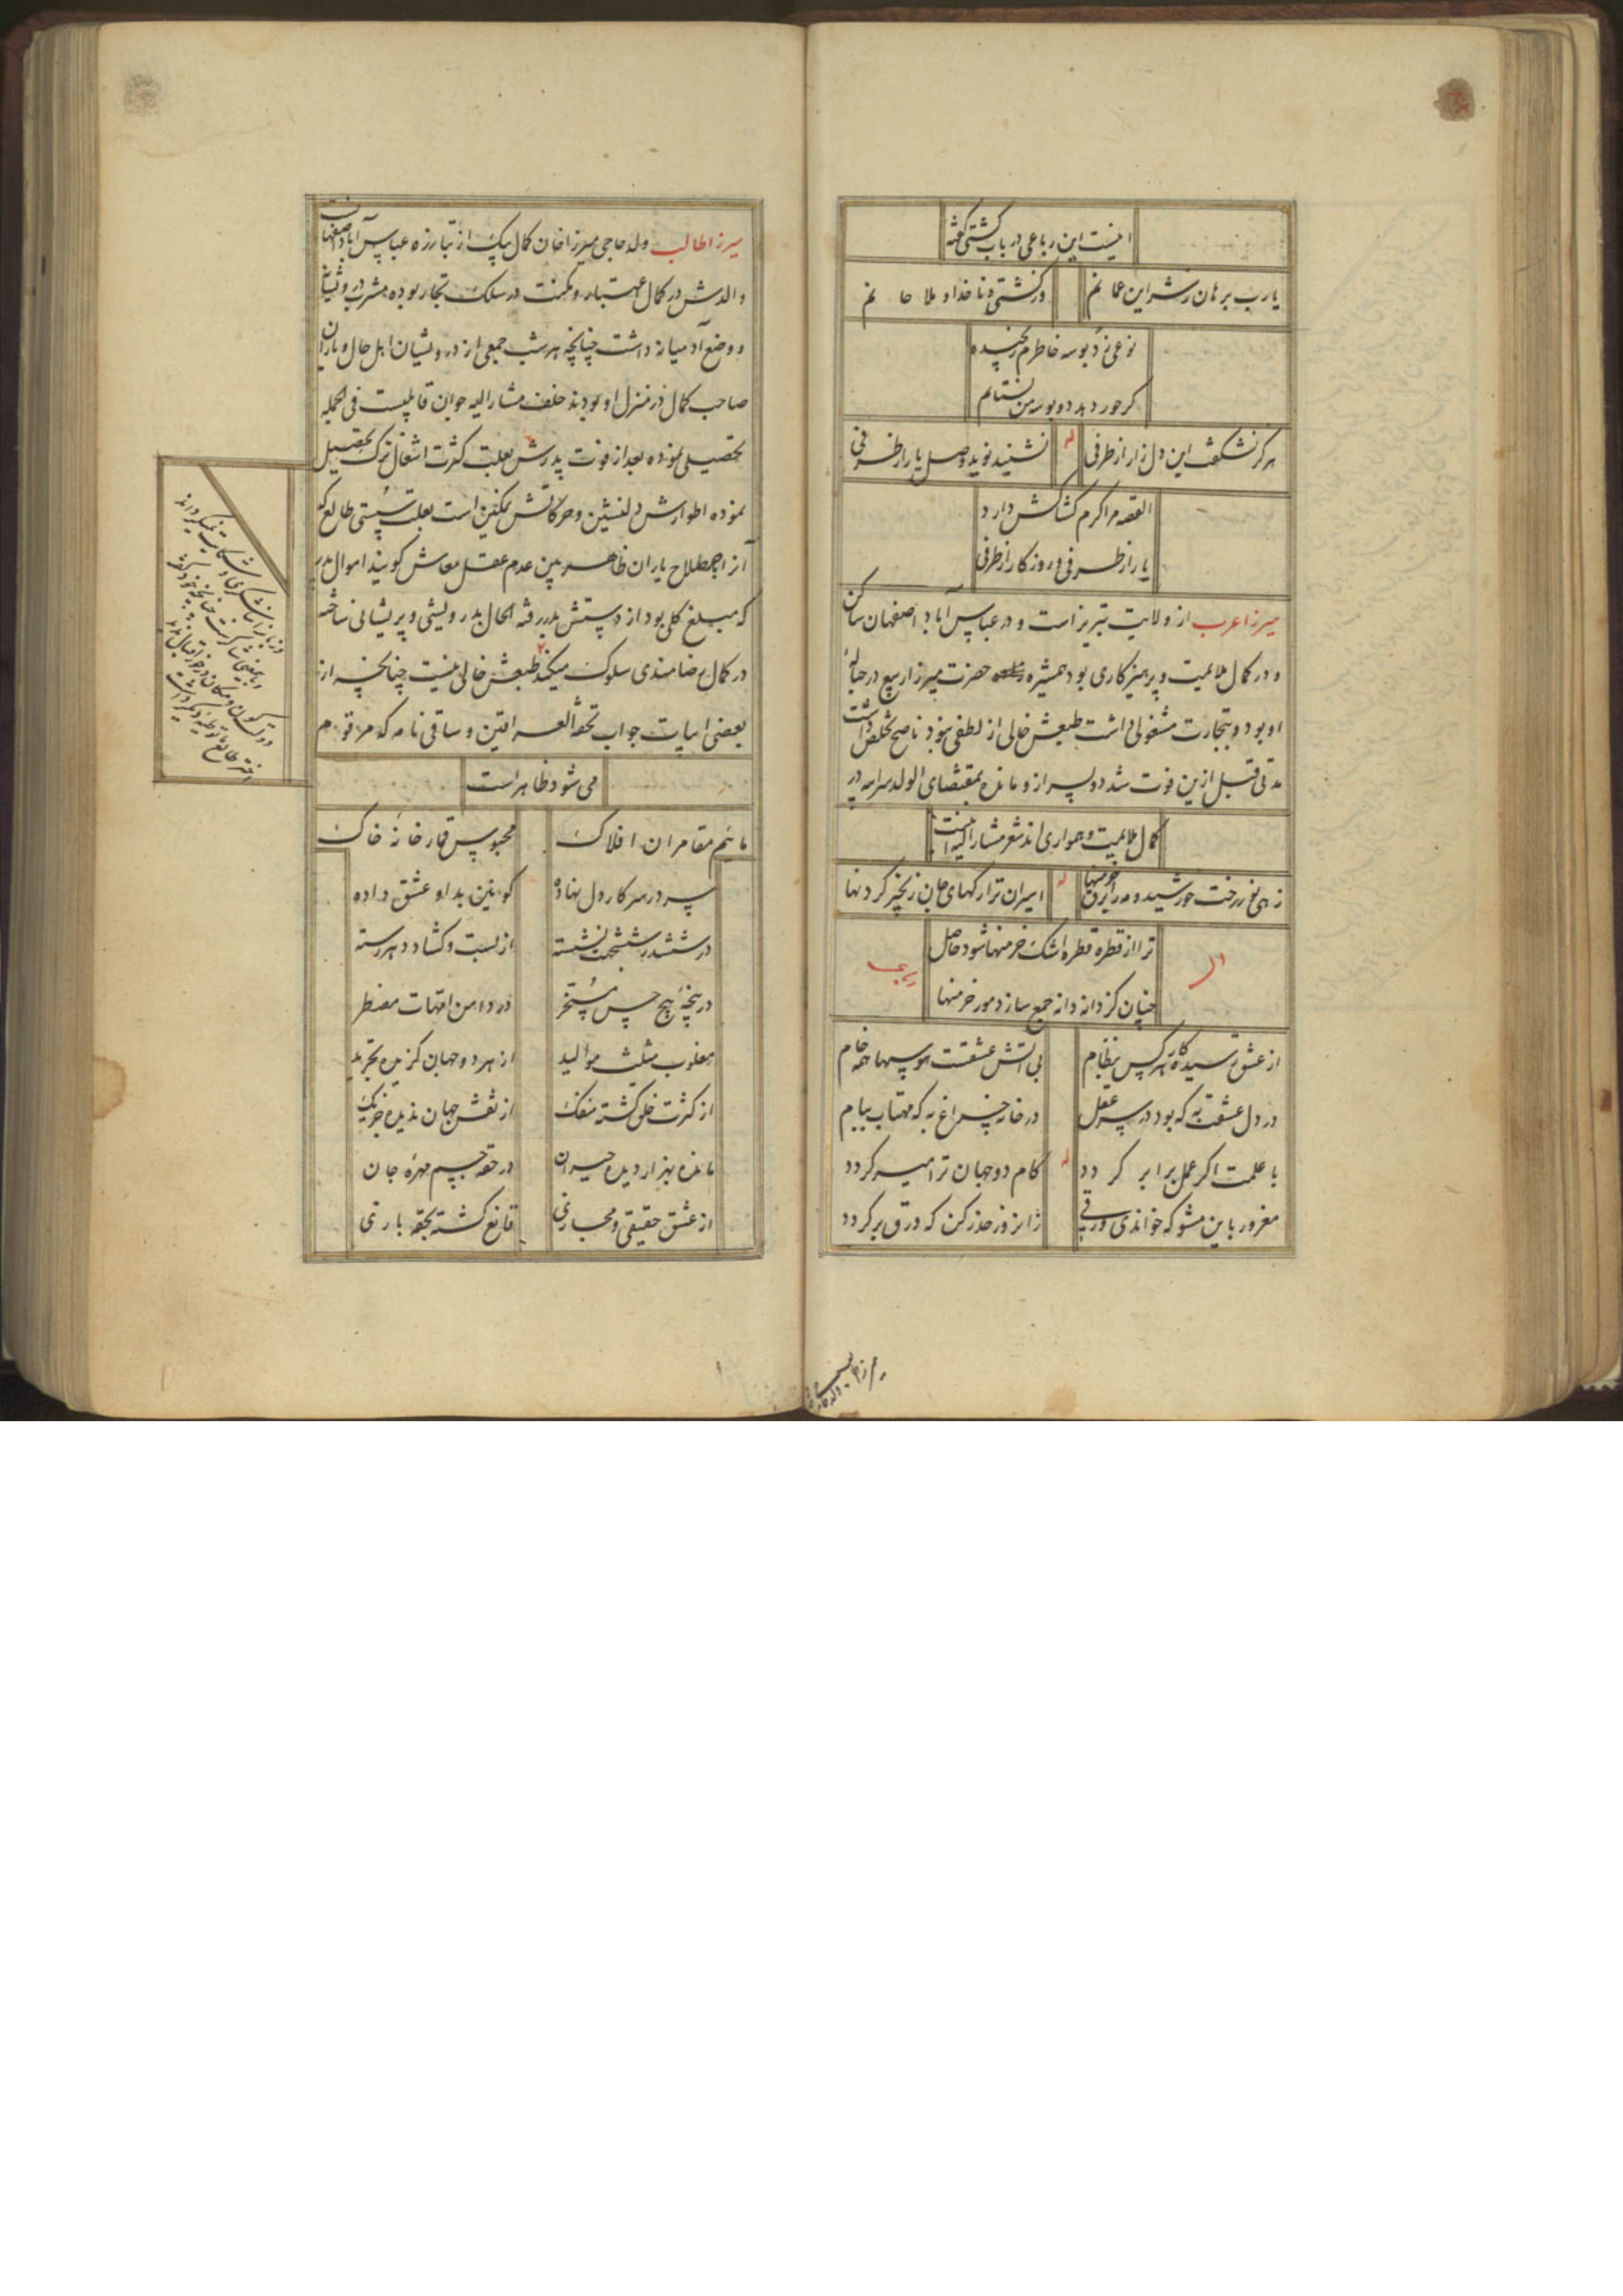 اینست این رباعی در باب کشتی گفته
یارب برهان ز شر این عمانم
در کشتی و ناخدا و ملاحانم
نوعی ز دبوسه خاطرم رنجیده
گر حور دهد دو بوسه من نستانم
هرگز نشکفت این دل زار از طرفی
له
نشنید نوید وصل یار از طرفی
القصه مرا کرم کشاکش دارد
یار از طرفی و روزگار از طرفی
میرزا عرب از ولایت تبریز است و در عباس آباد اصفهان ساکن
و در کمال ملایمت و پرهیزکاری بود همشیره حضرت میرزا ربیع در حباله
او بود و بتجارت مشغولی داشت طبعش خالی از لطفی نبود ناصح تخلص داشت
مدتی قبل ازین فوت شد دو پسر ازو مانده بمقتضای الولد سر ابیه در
کمال ملایمت و همواری اند شعر مشارالیه اینست
ز هی نور رخت خورشید و مه را برق خرمنها
له
اسیران ترا رگهای جان زنجیر گردنها
ترا از قطره قطره اشک خرمنها شود حاصل
چنان کز دانه دانه جمع سازد مور خرمنها
رباعی
از عشق رسیده کار هر کس بنظام
بی آتش عشقت هوسها همه خام
در دل عشقت به که بود در سر عقل
در خانه چراغ به که مهتاب ببام
با علمت اگر عمل برابر گردد
له
کام دو جهان ترا میسر گردد
مغرور باین مشو که خواندی ورقی
زان روز حذر کن که ورق برگردد
میرزا طالب ولد حاجی میرزا خان کمال بیک از تبارزه عباس آباد اصفهان
والدش در کمال اعتبار و مکنت در سلک تجار بوده مشرب درویشانه
و وضع آدمیانه داشت چنانچه هر شب جمعی از درویشان اهل حال و یاران
صاحب کمال در منزل او بودند خلف مشارالیه جوان قابلیست فی الجمله
تحصیلی نموده بعد از فوت پدرش بعلت کثرت اشغال ترک تحصیل
نموده اطوارش دلنشین و حرکاتش نمکین است بعلت سستی طالع که
آنرا باصطلاح یاران ظاهر بین عدم عقل معاش گویند اموال پدر
که مبلغ کلی بود از دستش بدر رفته الحال بدرویشی و پریشانی ساخته
در کمال رضامندی سلوک میکند طبعش خالی نیست چنانچه از
بعضی ابیات جواب تحفة العراقین و ساقی نامه که مرقوم
می شود ظاهر است
مائیم مقامران افلاک
محبوس قمار خانه خاک
سر در سر کار دل نهاده
کونین بداو عشق داده
در ششدر شش جهت نشسته
از بست و گشاد دهر رسته
در پنجه پنج حس مسخر
در دامن امهات مضطر
مغلوب مثلث موالید
از هر دو جهان گزیده تجرید
از کثرت خلق گشته منفک
از نقش جهان ندیده جز یک
مانده بهزار دیده حیران
در حقه جسم مهره جان
از عشق حقیقی و مجازی
قانع گشته بحقه بازی